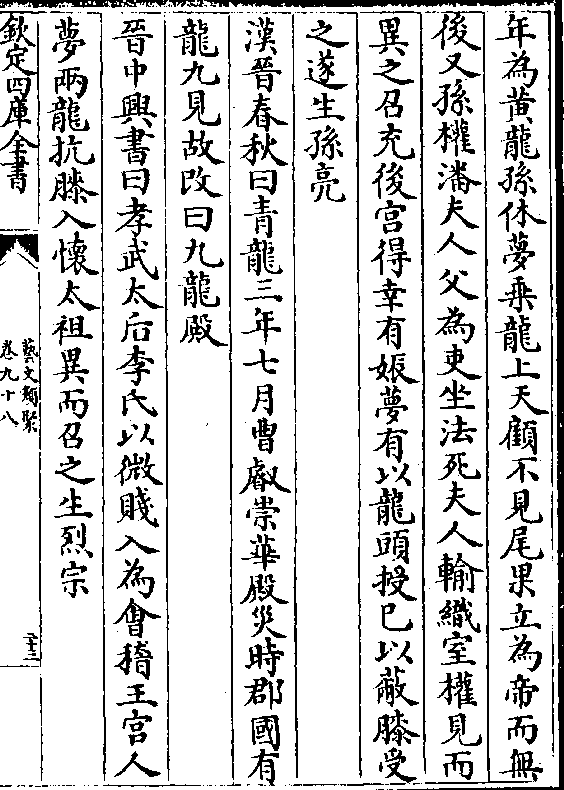 年為黄龍孫休夢乗龍上天顧不見尾果立為帝而無
後又孫權潘夫人父為吏坐法死夫人輸織室權見而
異之召充後宫得幸有娠夢有以龍頭授已以蔽膝受
之遂生孫亮
漢晉春秋曰青龍三年七月曹叡崇華殿災時郡國有
龍九見故改曰九龍殿
晉中興書曰孝武太后李氏以微賤入為會稽王宫人
夢兩龍抗膝入懐太祖異而召之生烈宗
欽定四庫全書
藝文類聚
卷九十八
二十三